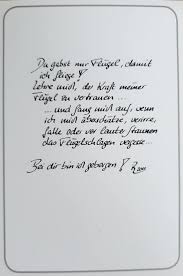 Du gabst mir Flügel, damit
ich fliege!
Lehre mich, der Kraft meiner
Flügel zu vertrauen...
...und fang mich auf, wenn
ich mich überschätze, verirre,
falle oder vor lauter träumen
das Flügelschlagen vergesse...
Bei dir bin ich geborgen!